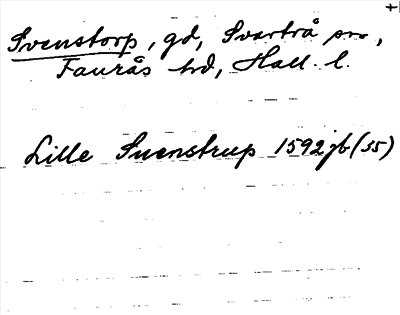 Svenstorp, gd, Svartrå sn,
Faurås hd, Hall. l.
Lille Suenstrup 1592 jb (35)